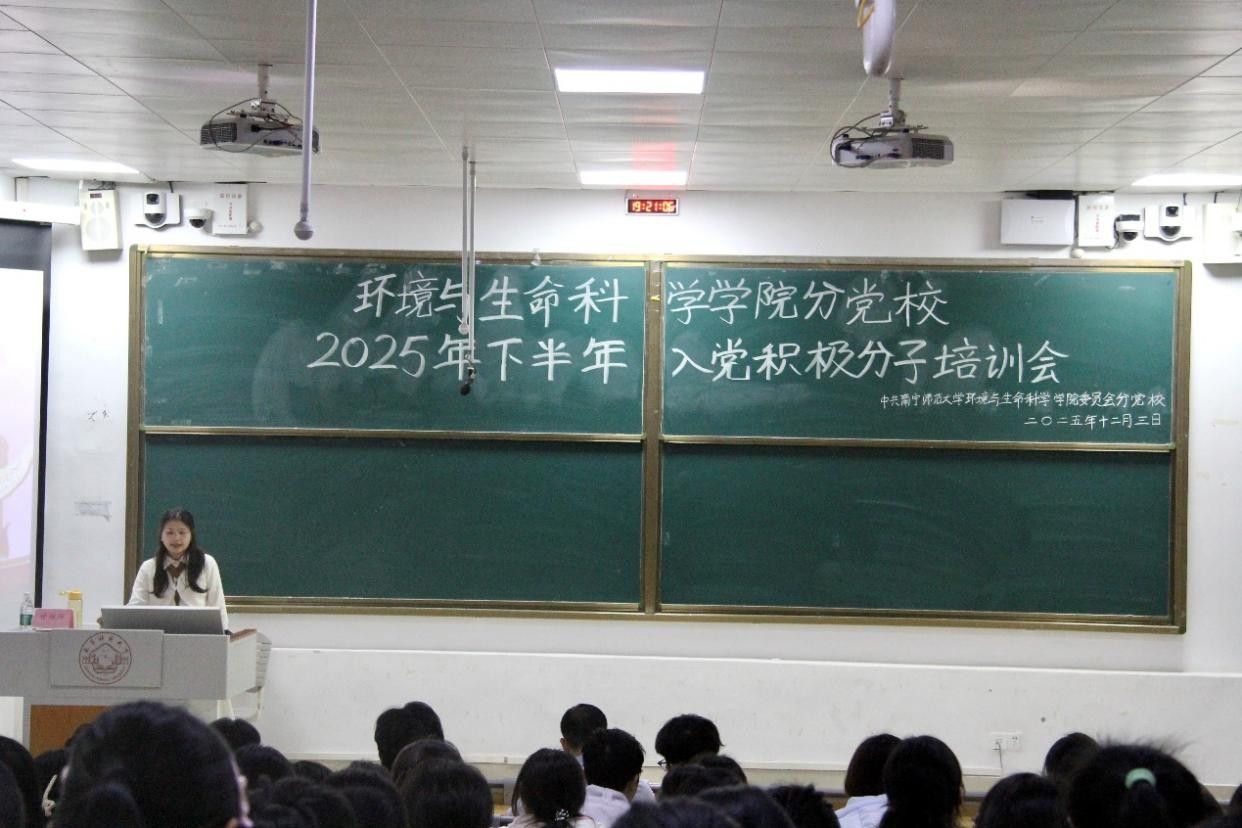 19:21:06
环境与生命科学学院分党校
2025年下半年入党积极分子培训会
中共南宁师范大学环境与生命科学学院委员会分党校
二〇二五年十二月三日